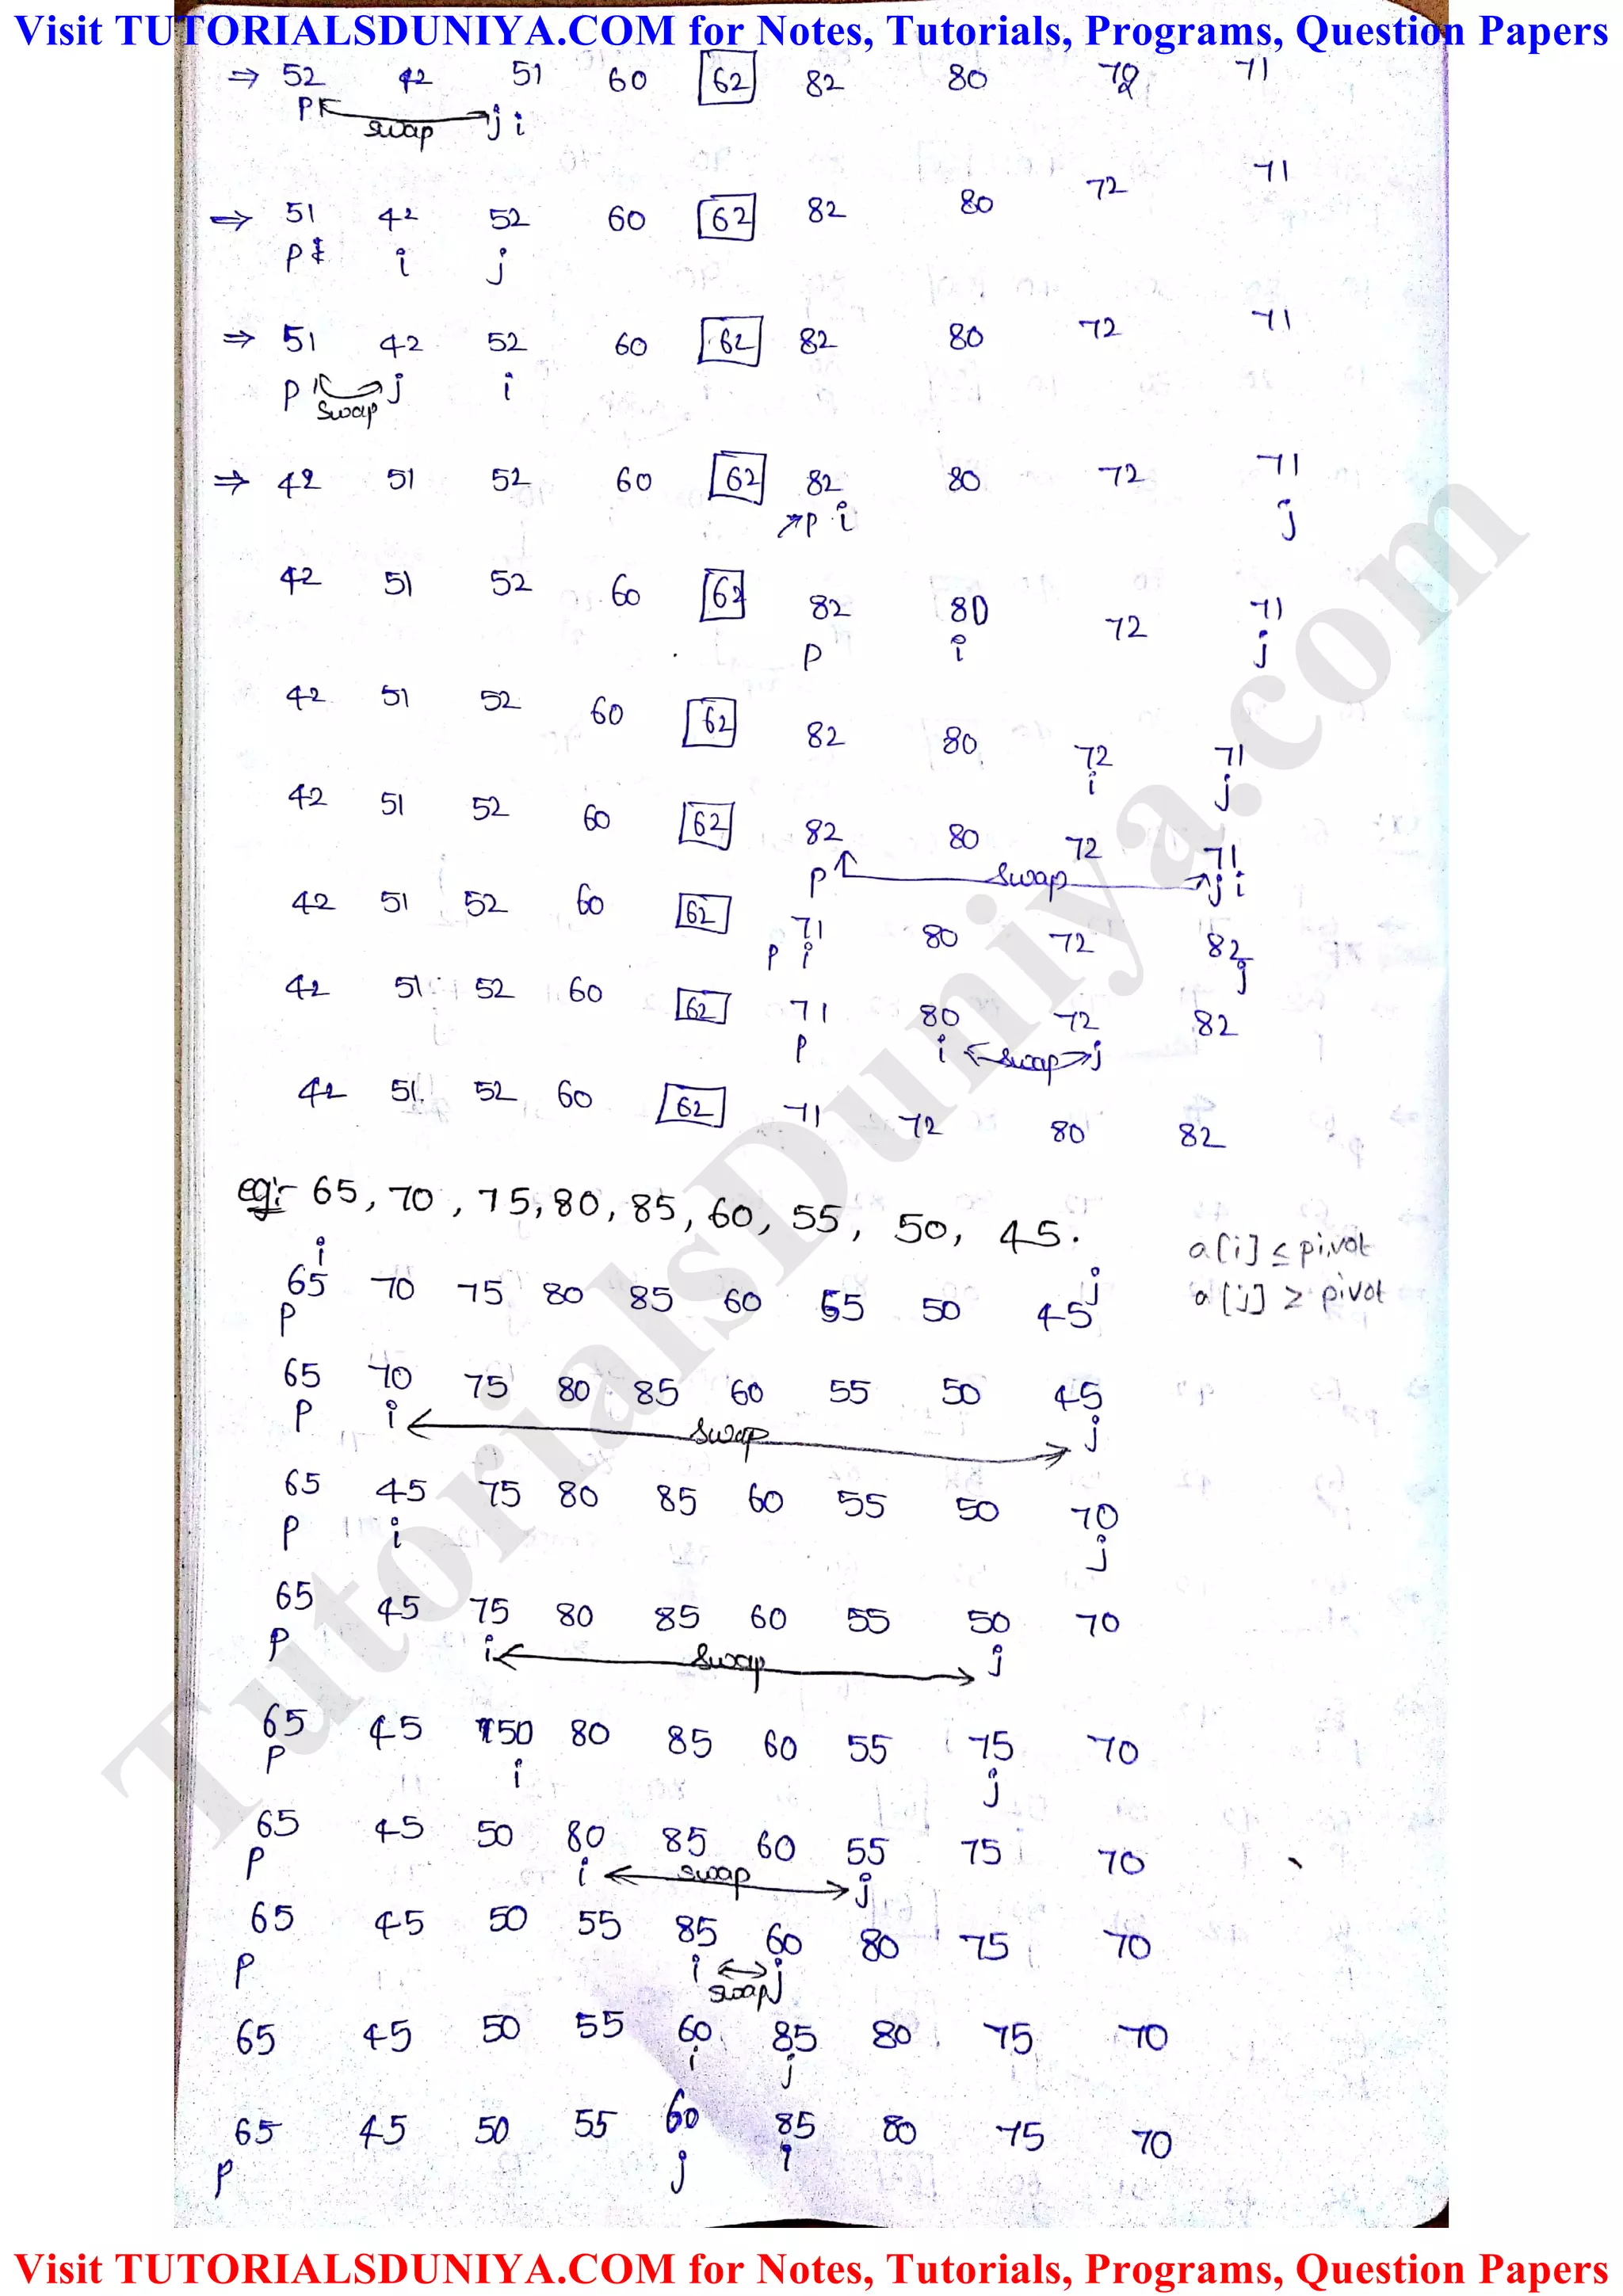 Visit TUTORIALSDUNIYA.COM for Notes, Tutorials, Programs, Question Papers
⇒ 52 42 51 60 62 82 80 72 71
P swap j i
⇒ 51 42 52 60 62 82 80 72 71
P i j
⇒ 51 42 52 60 62 82 80 72 71
P swap j i
⇒ 42 51 52 60 62 82 80 72 71
P i j
42 51 52 60 62 82 80 72 71
P i j
42 51 52 60 62 82 80 72 71
i j
42 51 52 60 62 82 80 72 71
P swap j i
42 51 52 60 62 71 80 72 82
P i j
42 51 52 60 62 71 80 72 82
P i swap j
42 51 52 60 62 71 72 80 82
eg:- 65, 70, 75, 80, 85, 60, 55, 50, 45.
a[i] ≤ pivot
a[j] ≥ pivot
i j
65 70 75 80 85 60 55 50 45
P
65 70 75 80 85 60 55 50 45
P i swap j
65 45 75 80 85 60 55 50 70
P i j
65 45 75 80 85 60 55 50 70
P i swap j
65 45 50 80 85 60 55 75 70
P i j
65 45 50 80 85 60 55 75 70
P i swap j
65 45 50 55 85 60 80 75 70
P i swap j
65 45 50 55 60 85 80 75 70
i j
65 45 50 55 60 85 80 75 70
P j i
TutorialsDuniya.com
Visit TUTORIALSDUNIYA.COM for Notes, Tutorials, Programs, Question Papers